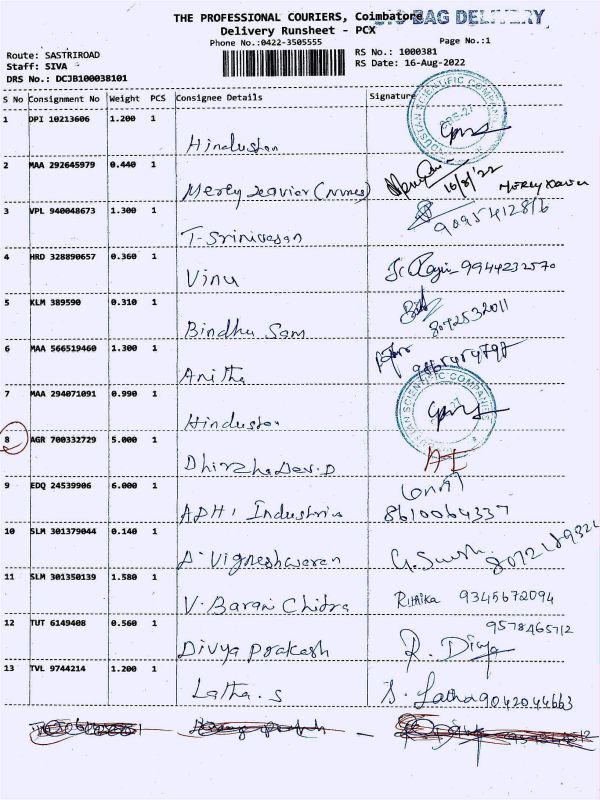 THE PROFESSIONAL COURIERS, Coimbatore BAG DELIVERY
Delivery Runsheet - PCX
Phone No.:0422-3505555 Page No.:1
Route: SASTRIROAD RS No.: 1000381
Staff: SIVA RS Date: 16-Aug-2022
DRS No.: DCJB100038101
S No Consignment No Weight PCS Consignee Details Signature
1 DPI 10213606 1.200 1 Hindustan
2 MAA 292645979 0.440 1 Mercy Xavier (Nunes) 16/8/22 Mercy Xavier
3 VPL 940048673 1.300 1 T. Srinivasan
4 HRD 328890657 0.360 1 Vinu 9944232570
5 KLM 389590 0.310 1 Bindhu Sam 8072532011
6 MAA 566519460 1.300 1 Anitha
7 MAA 294071091 0.990 1 Hindustan
8 AGR 700332729 5.000 1 Dhirzha Dev.D
9 EDQ 24539906 6.000 1 ADHI Industries 8610064337
10 SLM 301379044 0.140 1 A. Vigneshwaran
11 SLM 301350139 1.580 1 V. Barani Chidra Rithika 9345672094
12 TUT 6149408 0.560 1 Divya prakash R. Divya 9578465712
13 TVL 9744214 1.200 1 Latha.S S. Latha 9042044663